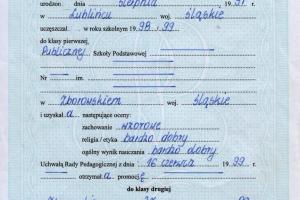 urodzon dnia sierpnia 19 91
w Lublińcu woj. śląskie
uczęszczał w roku szkolnym 1998/99
do klasy pierwszej,
Publicznej Szkoły Podstawowej
Nr im.
w Zborowskiem woj. śląskie
i uzyskał a następujące oceny:
zachowanie wzorowe
religia / etyka bardzo dobry
ogólny wynik nauczania bardzo dobry
Uchwałą Rady Pedagogicznej z dnia 16 czerwca 1999 r.
otrzymał a promocję
do klasy drugiej